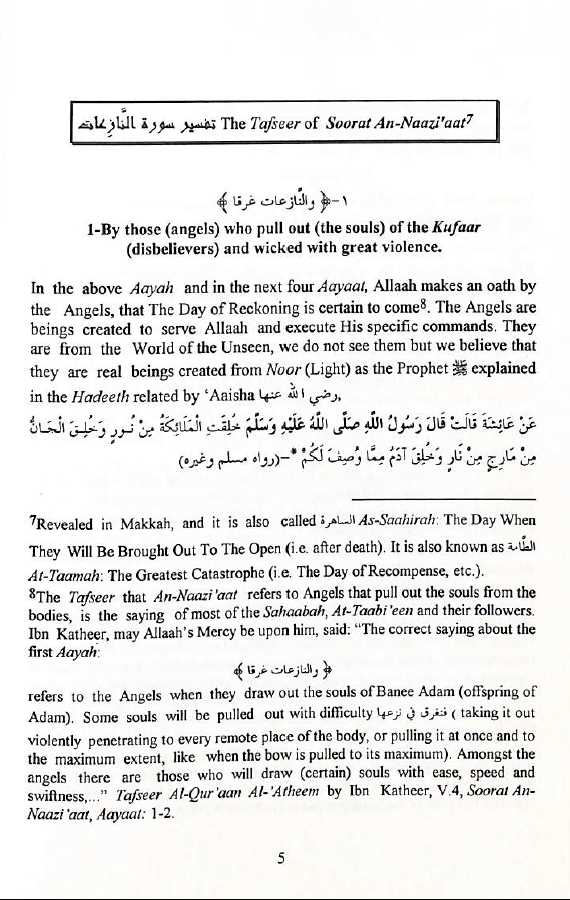 تفسير سورة النَّازِعات The Tafseer of Soorat An-Naazi'aat7
١-﴿ والنَّازعات غرقا ﴾
1-By those (angels) who pull out (the souls) of the Kufaar
(disbelievers) and wicked with great violence.
In the above Aayah and in the next four Aayaat, Allaah makes an oath by
the Angels, that The Day of Reckoning is certain to come8. The Angels are
beings created to serve Allaah and execute His specific commands. They
are from the World of the Unseen, we do not see them but we believe that
they are real beings created from Noor (Light) as the Prophet ﷺ explained
in the Hadeeth related by ‘Aaisha رضي الله عنها,
عَنْ عَائِشَةَ قَالَتْ قَالَ رَسُولُ اللَّهِ صَلَّى اللَّهُ عَلَيْهِ وَسَلَّمَ خُلِقَتِ الْمَلَائِكَةُ مِنْ نُورٍ وَخُلِقَ الْجَانُّ
مِنْ مَارِجٍ مِنْ نَارٍ وَخُلِقَ آدَمُ مِمَّا وُصِفَ لَكُمْ *-(رواه مسلم وغيره)
7Revealed in Makkah, and it is also called الساهرة As-Saahirah: The Day When
They Will Be Brought Out To The Open (i.e. after death). It is also known as الطَّامة
At-Taamah: The Greatest Catastrophe (i.e. The Day of Recompense, etc.).
8The Tafseer that An-Naazi'aat refers to Angels that pull out the souls from the
bodies, is the saying of most of the Sahaabah, At-Taabi'een and their followers.
Ibn Katheer, may Allaah's Mercy be upon him, said: “The correct saying about the
first Aayah:
﴿ والنَّازعات غرقا ﴾
refers to the Angels when they draw out the souls of Banee Adam (offspring of
Adam). Some souls will be pulled out with difficulty فتغرق في نزعها ( taking it out
violently penetrating to every remote place of the body, or pulling it at once and to
the maximum extent, like when the bow is pulled to its maximum). Amongst the
angels there are those who will draw (certain) souls with ease, speed and
swiftness,...” Tafseer Al-Qur'aan Al-'Atheem by Ibn Katheer, V.4, Soorat An-
Naazi'aat, Aayaat: 1-2.
5